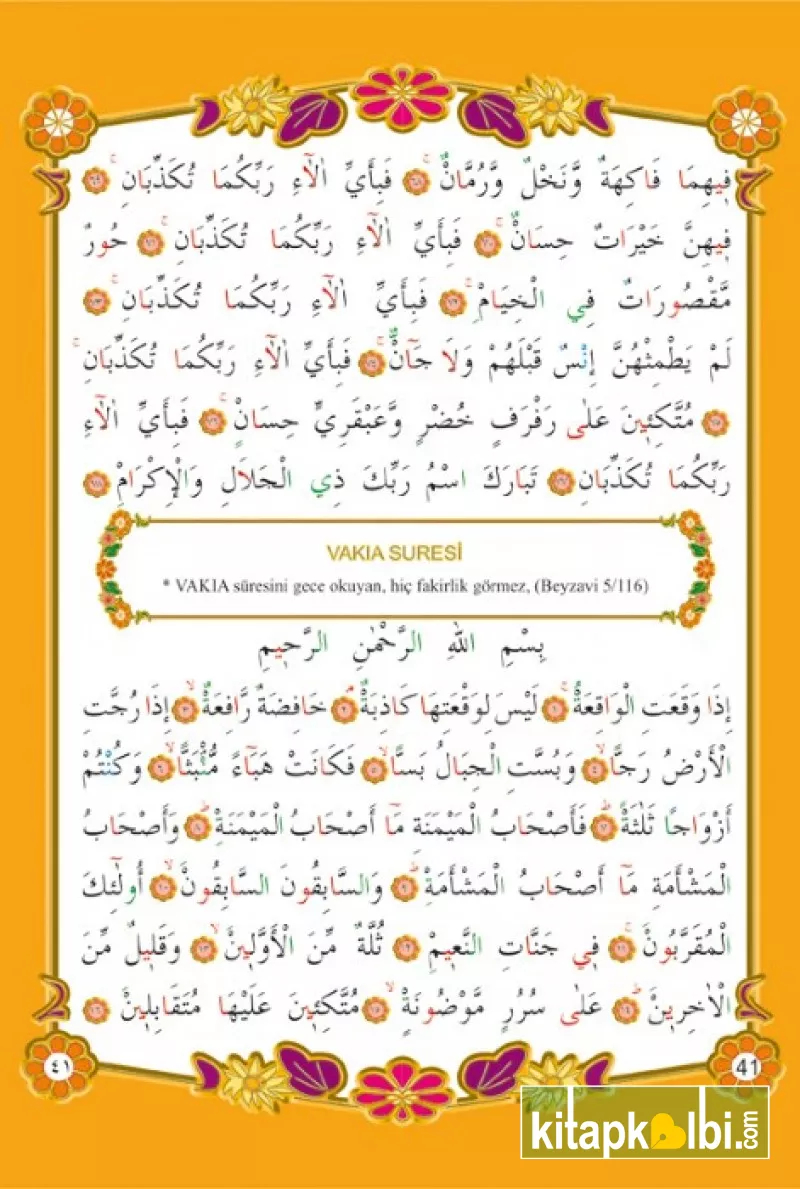 فِيهِمَا فَاكِهَةٌ وَنَخْلٌ وَرُمَّانٌۚ ﴿٦٨﴾ فَبِأَيِّ اٰلَٓاءِ رَبِّكُمَا تُكَذِّبَانِۚ ﴿٦٩﴾
فِيهِنَّ خَيْرَاتٌ حِسَانٌۚ ﴿٧٠﴾ فَبِأَيِّ اٰلَٓاءِ رَبِّكُمَا تُكَذِّبَانِۚ ﴿٧١﴾ حُورٌ
مَقْصُورَاتٌ فِي الْخِيَامِۚ ﴿٧٢﴾ فَبِأَيِّ اٰلَٓاءِ رَبِّكُمَا تُكَذِّبَانِۚ ﴿٧٣﴾
لَمْ يَطْمِثْهُنَّ إِنْسٌ قَبْلَهُمْ وَلَا جَٓانٌّۚ ﴿٧٤﴾ فَبِأَيِّ اٰلَٓاءِ رَبِّكُمَا تُكَذِّبَانِۚ
﴿٧٥﴾ مُتَّكِـِٔينَ عَلٰى رَفْرَفٍ خُضْرٍ وَعَبْقَرِيٍّ حِسَانٍۚ ﴿٧٦﴾ فَبِأَيِّ اٰلَٓاءِ
رَبِّكُمَا تُكَذِّبَانِ ﴿٧٧﴾ تَبَارَكَ اسْمُ رَبِّكَ ذِي الْجَلَالِ وَالْاِكْرَامِ ﴿٧٨﴾
VAKIA SURESİ
* VAKIA sûresini gece okuyan, hiç fakirlik görmez, (Beyzavi 5/116)
بِسْمِ اللّٰهِ الرَّحْمٰنِ الرَّحِيمِ
إِذَا وَقَعَتِ الْوَاقِعَةُۙ ﴿١﴾ لَيْسَ لِوَقْعَتِهَا كَاذِبَةٌۢ ﴿٢﴾ خَافِضَةٌ رَافِعَةٌۙ ﴿٣﴾ إِذَا رُجَّتِ
الْأَرْضُ رَجًّاۙ ﴿٤﴾ وَبُسَّتِ الْجِبَالُ بَسًّاۙ ﴿٥﴾ فَكَانَتْ هَبَٓاءً مُنْبَثًّاۙ ﴿٦﴾ وَكُنْتُمْ
أَزْوَاجًا ثَلٰثَةًۜ ﴿٧﴾ فَأَصْحَابُ الْمَيْمَنَةِ مَٓا أَصْحَابُ الْمَيْمَنَةِۜ ﴿٨﴾ وَأَصْحَابُ
الْمَشْأَمَةِ مَٓا أَصْحَابُ الْمَشْأَمَةِۜ ﴿٩﴾ وَالسَّابِقُونَ السَّابِقُونَۙ ﴿١٠﴾ أُولٰٓئِكَ
الْمُقَرَّبُونَۚ ﴿١١﴾ فِي جَنَّاتِ النَّعِيمِ ﴿١٢﴾ ثُلَّةٌ مِنَ الْأَوَّلِينَۙ ﴿١٣﴾ وَقَلِيلٌ مِنَ
الْاٰخِرِينَۜ ﴿١٤﴾ عَلٰى سُرُرٍ مَوْضُونَةٍۙ ﴿١٥﴾ مُتَّكِـِٔينَ عَلَيْهَا مُتَقَابِلِينَ ﴿١٦﴾
٤١
41
kitapkalbi.com